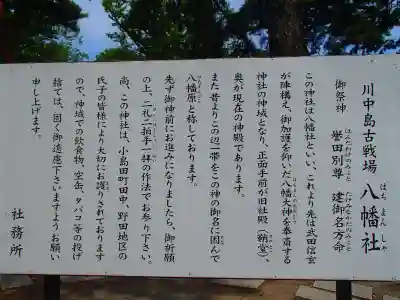 川中島古戦場 八幡社
はちまんしゃ
御祭神 誉田別尊 建御名方命
ほんだわけのみこと たけみなかたのみこと
この神社は八幡社といい、これより先は武田信玄
が陣構え、御加護を仰いだ八幡大神を奉斎する
神社の神域となり、正面手前が旧社殿(鞘堂)、
奥が現在の神殿であります。
また昔よりこの辺一帯をこの神の御名に因んで
八幡原と称しております。
先ず御神前にお進みになりましたら、御祈願
の上、二礼二拍手一拝の作法でお参り下さい。
尚、この神社は、小島田町田中、野田地区の
氏子の皆様により大切にお護りされております
ので、神域での飲食物、空缶、タバコ等の投げ
捨ては、固く御遠慮下さいますようお願い
申し上げます。
社務所